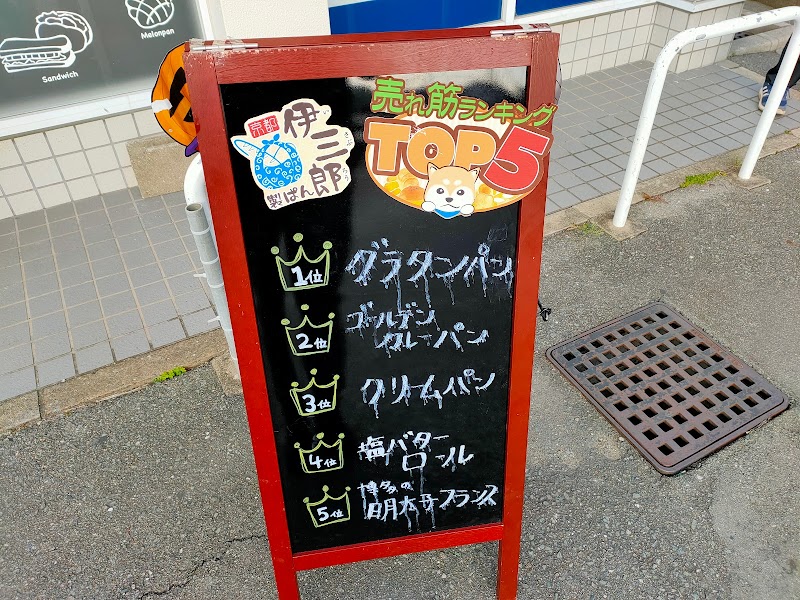 Sandwich
Melonpan
京都
伊三郎
いさぶろう
製ぱん
売れ筋ランキング
TOP5
1位 グラタンパン
2位 ゴールデン
カレーパン
3位 クリームパン
4位 塩バター
ロール
5位 博多の
明太子フランス